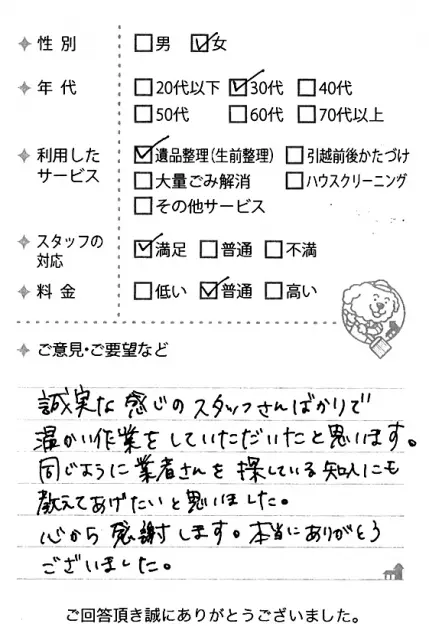 性別 □男 ☑女
年代 □20代以下 ☑30代 □40代
□50代 □60代 □70代以上
利用したサービス ☑遺品整理(生前整理) □引越前後かたづけ
□大量ごみ解消 □ハウスクリーニング
□その他サービス
スタッフの対応 ☑満足 □普通 □不満
料金 □低い ☑普通 □高い
ご意見・ご要望など
誠実な感じのスタッフさんばかりで
温かい作業をしていただいたと思います。
同じように業者さんを探している知人にも
教えてあげたいと思いました。
心から感謝します。本当にありがとう
ございました。
ご回答頂き誠にありがとうございました。